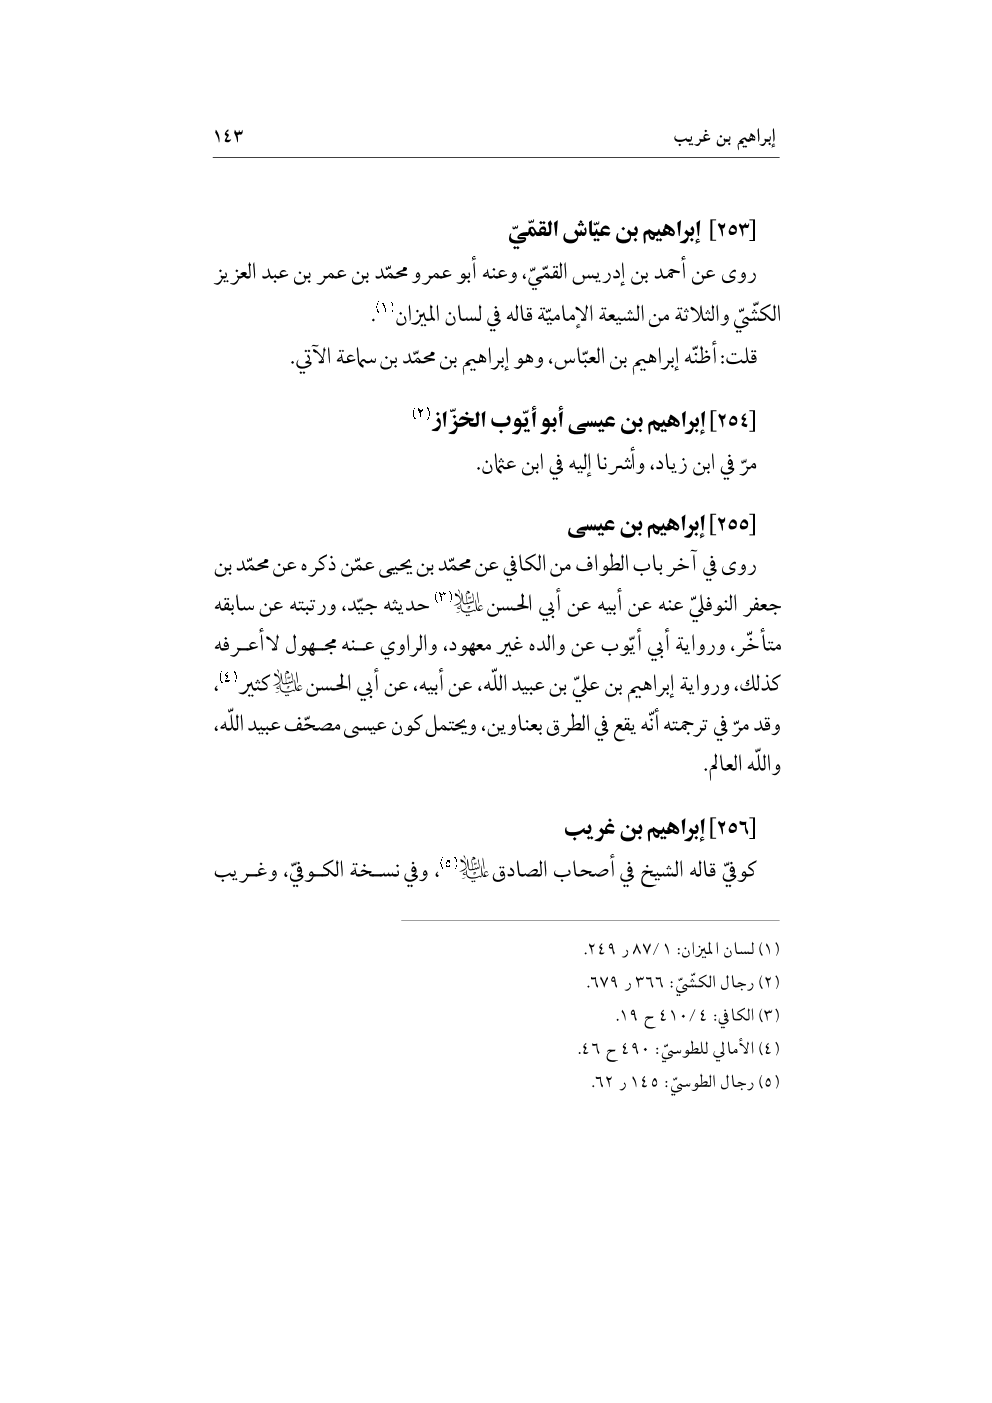 إبراهيم بن غريب ١٤٣
[٢٥٣] إبراهيم بن عيّاش القمّيّ
روى عن أحمد بن إدريس القمّيّ، وعنه أبو عمرو محمّد بن عمر بن عبد العزيز
الكشّيّ والثلاثة من الشيعة الإماميّة قاله في لسان الميزان(١).
قلت: أظنّه إبراهيم بن العبّاس، وهو إبراهيم بن محمّد بن سماعة الآتي.
[٢٥٤] إبراهيم بن عيسى أبو أيّوب الخزّاز(٢)
مرّ في ابن زياد، وأشرنا إليه في ابن عثمان.
[٢٥٥] إبراهيم بن عيسى
روى في آخر باب الطواف من الكافي عن محمّد بن يحيى عمّن ذكره عن محمّد بن
جعفر النوفليّ عنه عن أبيه عن أبي الحسن عليه السلام(٣) حديثه جيّد، ورتبته عن سابقه
متأخّر، ورواية أبي أيّوب عن والده غير معهود، والراوي عنه مجهول لا أعرفه
كذلك، ورواية إبراهيم بن عليّ بن عبيد اللّه، عن أبيه، عن أبي الحسن عليه السلام كثير(٤)،
وقد مرّ في ترجمته أنّه يقع في الطرق بعناوين، ويحتمل كون عيسى مصحّف عبيد اللّه،
واللّه العالم.
[٢٥٦] إبراهيم بن غريب
كوفيّ قاله الشيخ في أصحاب الصادق عليه السلام(٥)، وفي نسخة الكوفيّ، وغريب
(١) لسان الميزان: ١/ ٨٧ ر ٢٤٩.
(٢) رجال الكشّيّ: ٣٦٦ ر ٦٧٩.
(٣) الكافي: ٤/ ٤١٠ ح ١٩.
(٤) الأمالي للطوسيّ: ٤٩٠ ح ٤٦.
(٥) رجال الطوسيّ: ١٤٥ ر ٦٢.